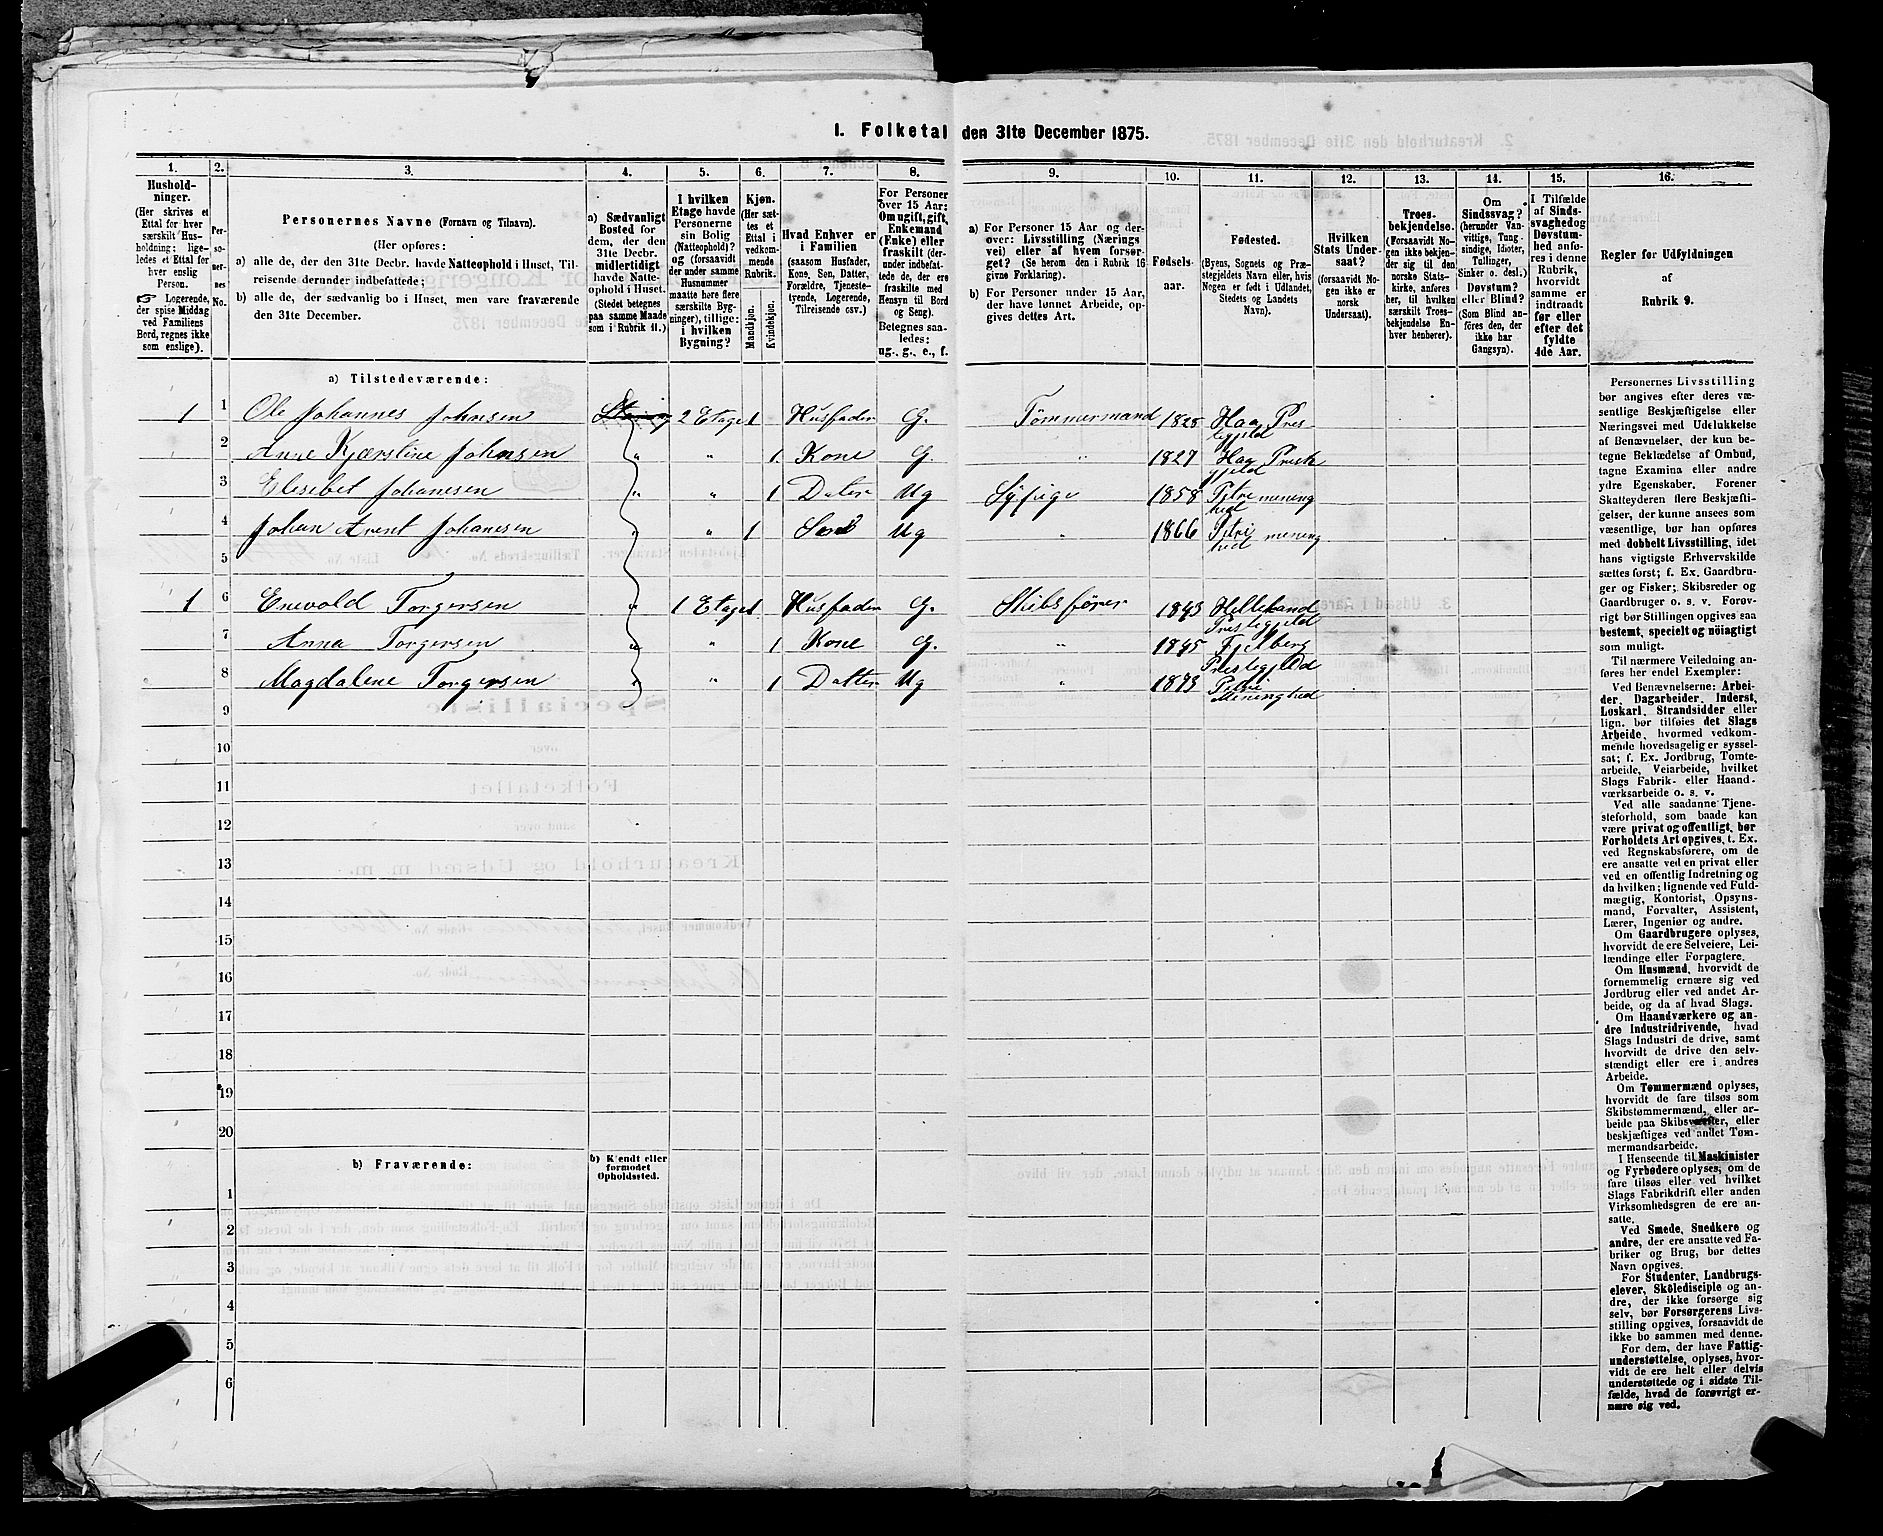 I. Folketal den 31te December 1875.
1. 2. 3. 4. 5. 6. 7. 8. 9. 10. 11. 12. 13. 14. 15. 16.
Hushold-
ninger.
(Her skrives et
Ettal for hver
særskilt Hus-
holdning; lige-
ledes et Ettal for
hver enslig
Person.
☞ Logerende,
der spise Middag
ved Familiens
Bord, regnes ikke
som enslige).
Per-
so-
ner-
nes
No.
Personernes Navne (Fornavn og Tilnavn).
(Her opføres:
a) alle de, der den 31te Decbr. havde Natteophold i Huset, Til-
reisende derunder indbefattede;
b) alle de, der sædvanlig bo i Huset, men vare fraværende
den 31te December.
a) Sædvanligt
Bosted for
dem, der den
31te Decbr.
midlertidigt
havde Natte-
ophold i Huset.
(Stedet betegnes
paa samme Maade
som i Rubrik 11.)
I hvilken
Etage havde
Personerne
sin Bolig
(Natteophold)?
og (forsaavidt
der under samme
Husnummer
maatte høre flere
særskilte Byg-
ninger), tillige:
i hvilken
Bygning?
Kjøn.
(Her sæt-
tes et
Ettal i
vedkom-
mende
Rubrik.
Mandkjøn.
Kvindekjøn.
Hvad Enhver er
i Familien
(saasom Husfader,
Kone, Søn, Datter,
Forældre, Tjeneste-
tyende, Logerende,
Tilreisende osv.)
For Personer
over 15 Aar:
Om ugift, gift,
Enkemand
(Enke) eller
fraskilt (der-
under indbefat-
tede de, der ere
fraskilte med
Hensyn til Bord
og Seng).
Betegnes saa-
ledes:
ug., g., e., f.
a) For Personer 15 Aar og der-
over: Livsstilling (Nærings
vei) eller af hvem forsør-
get? (Se herom den i Rubrik 16
givne Forklaring).
b) For Personer under 15 Aar,
der have lønnet Arbeide, op-
gives dettes Art.
Fødsels-
aar.
Fødested.
(Byens, Sognets og Præ-
stegjeldets Navn eller, hvis
Nogen er født i Udlandet,
Stedets og Landets
Navn).
Hvilken
Stats Under-
saat?
(forsaavidt No-
gen ikke er
norsk
Undersaat).
Troes-
bekjendelse.
(Forsaavidt No-
gen ikke bekjen-
der sig til den
norske Stats-
kirke, anføres
her, til hvilken
særskilt Troes-
bekjendelse En-
hver henhører).
Om
Sindssvag?
(herunder Van-
vittige, Tung-
sindige, Idioter,
Tullinger,
Sinker o. desl.)
Døvstum?
eller Blind?
(Som Blind an-
føres den, der
ikke har
Gangsyn).
I Tilfælde
af Sinds-
svaghed og
Døvstum-
hed anfø-
res i denne
Rubrik,
hvorvidt
samme er
indtraadt
før eller
efter det
fyldte
4de Aar.
Regler for Udfyldningen
af
Rubrik 9.
a) Tilstedeværende:
1 1 Ole Johannes Johnsen 2 Etage 1 Husfader G. Tømmermand 1828 Haa Pres
tegjeld
2 Anne Kjærstine Johnsen " " 1. Kone G. " 1827 Haa Prest
gjeld
3 Elesebet Johanesen " " 1 Dater Ug Syþige 1858 Petre mening
hed
4 Johan Arent Johanesen " " 1 Søn Ug " 1866 Petri mening
hed
5
1 6 Enevold Torgersen " 1 Etage 1. Husfader G. Skibsfører 1843 Helleland
Prestegjeld
7 Anna Torgersen " " 1 Kone G. " 1845 Fjelberg
Prestegjeld
8 Magdalene Torgersen " " 1 Datter Ug " 1873 Petri
Meninghed
9
10
11
12
13
14
15
16
17
18
19
20
b) Fraværende:
b) Kjendt eller
formodet
Opholdssted.
1
2
3
4
5
6
Personernes Livsstilling
bør angives efter deres væ-
sentlige Beskjæftigelse eller
Næringsvei med Udelukkelse
af Benævnelser, der kun be-
tegne Beklædelse af Ombud,
tagne Examina eller andre
ydre Egenskaber. Forener
Skatteyderen flere Beskjæfti-
gelser, der kunne ansees som
væsentlige, bør han opføres
med dobbelt Livsstilling, idet
hans vigtigste Erhvervskilde
sættes først; f. Ex. Gaardbru-
ger og Fisker; Skibsreder og
Gaardbruger o. s. v. Forøv-
rigt bør Stillingen opgives saa
bestemt, specielt og nöiagtigt
som muligt.
Til nærmere Veiledning an-
føres her endel Exempler:
Ved Benævnelserne: Arbei-
der, Dagarbeider, Inderst,
Løskarl, Strandsidder eller
lign. bør tilføies det Slags
Arbeide, hvormed vedkom-
mende hovedsagelig er syssel-
sat; f. Ex. Jordbrug, Tomte-
arbeide, Veiarbeide, hvilket
Slags Fabrik- eller Haand-
værksarbeide o. s. v.
Ved alle saadanne Tjene-
steforhold, som baade kan
være privat og offentligt, bør
Forholdets Art opgives, t. Ex.
ved Regnskabsførere, om de
ere ansatte ved en privat eller
ved en offentlig Indretning og
da hvilken; lignende ved Fuld-
mægtig, Kontorist, Opsyns-
mand, Forvalter, Assistent,
Lærer, Ingeniør og andre.
Om Gaardbrugere oplyses,
hvorvidt de ere Selveiere, Lei-
lændinge eller Forpagtere.
Om Husmænd, hvorvidt de
fornemmelig ernære sig ved
Jordbrug eller ved andet Ar-
beide, og da af hvad Slags.
Om Haandværkere og an-
dre Industridrivende, hvad
Slags Industri de drive, samt
hvorvidt de drive den selv-
stændigt eller ere i andres
Arbeide.
Om Tømmermænd oplyses,
hvorvidt de fare tilsøs som
Skibstømmermænd, eller ar-
beide paa Skibsværfter, eller
beskjæftiges ved andet Tøm-
mermandsarbeide.
I Henseende til Maskinister
og Fyrbødere oplyses, om de
fare tilsøs eller ved hvilket
Slags Fabrikdrift eller anden
Virksomhedsgren de ere an-
satte.
Ved Smede, Snedkere og
andre, der ere ansatte ved Fa-
briker og Brug, bør dettes
Navn opgives.
For Studenter, Landbrugs-
elever, Skoledisciple og an-
dre, der ikke forsørge sig
selv, bør Forsørgerens Livs-
stilling opgives, forsaavidt de
ikke bo sammen med denne.
For dem, der have Fattig-
understøttelse, oplyses, hvor-
vidt de ere helt eller delvis
understøttede og i sidste Til-
fælde, hvad de forøvrigt er-
nære sig ved.